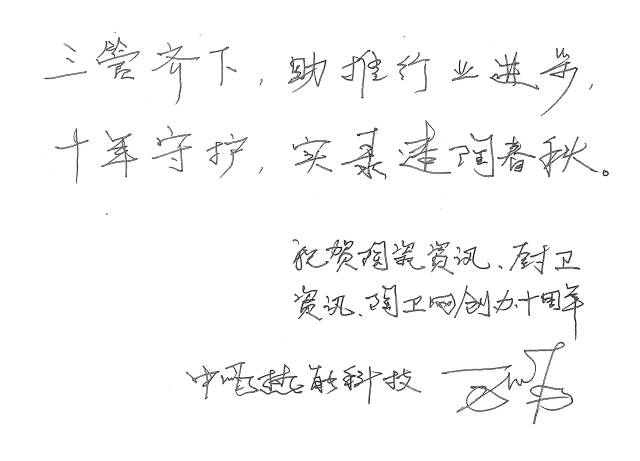 三管齐下,助推行业进步,
十年守护,实录建陶春秋。
祝贺陶瓷资讯、厨卫
资讯、陶卫网创办十周年
中鹏热能科技